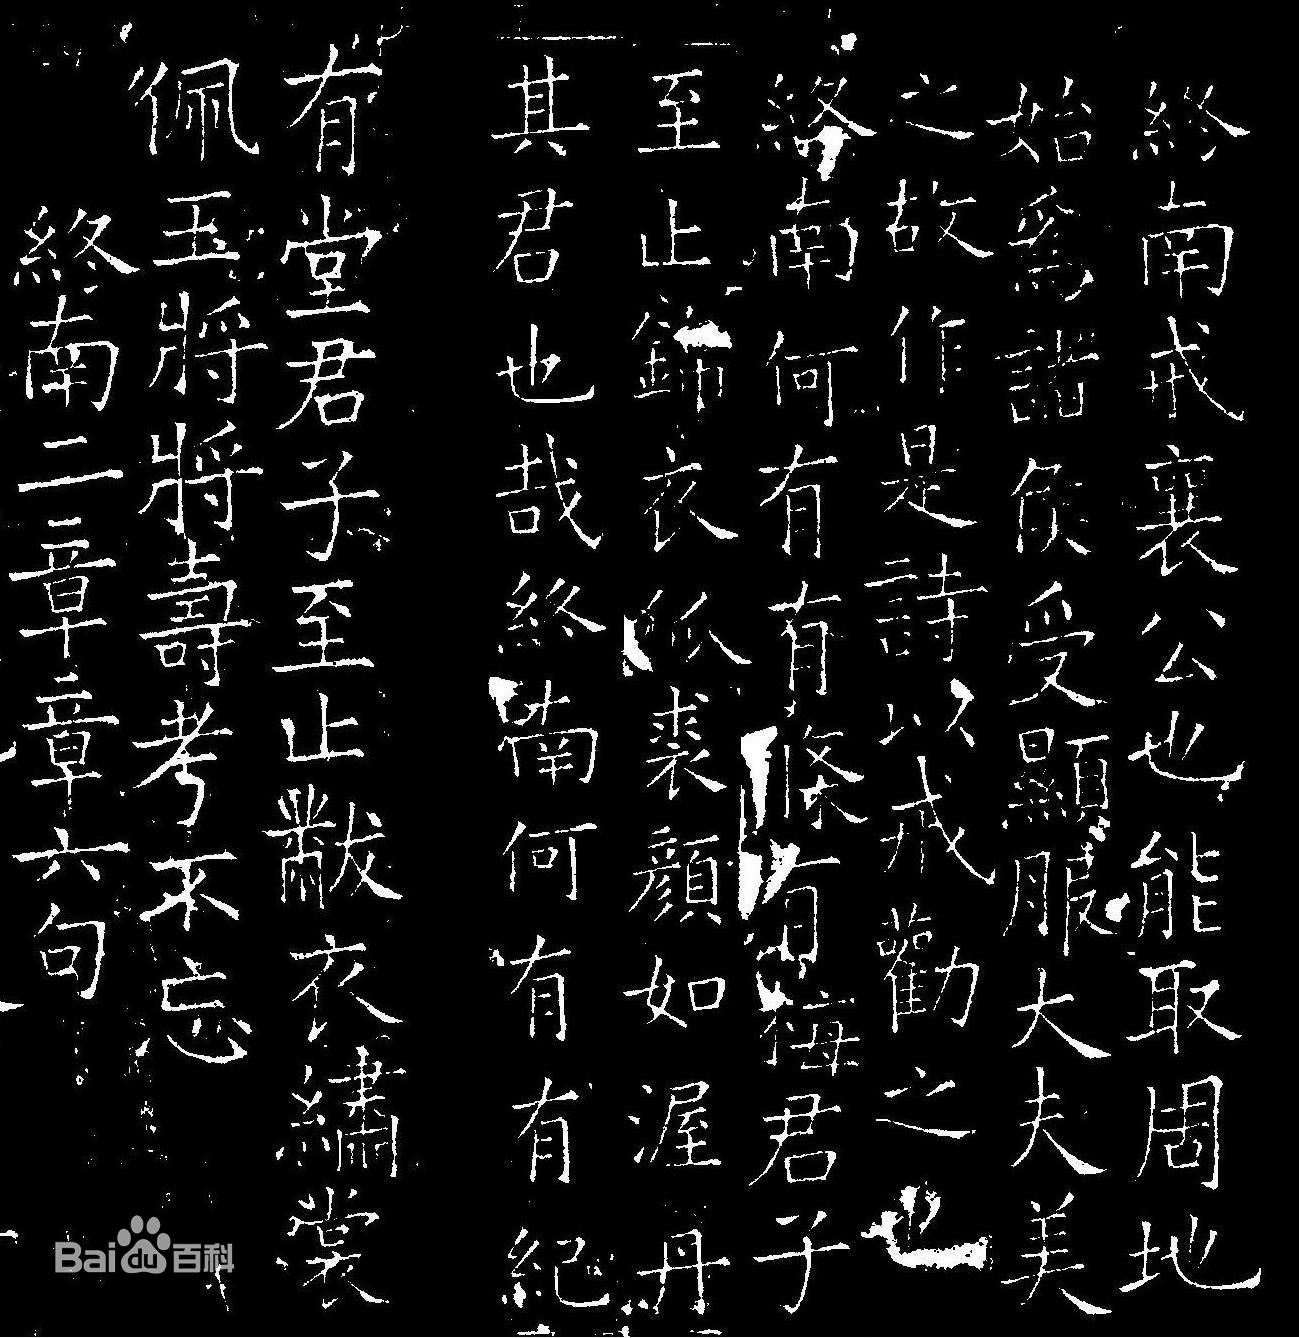 終南戒襄公也能取周地
始爲諸侯受顯服大夫美
之故作是詩以戒勸之也
終南何有有條有梅君子
至止錦衣狐裘顏如渥丹
其君也哉終南何有有紀
有堂君子至止黻衣繡裳
佩玉將將壽考不忘
終南二章章六句
Bai百科